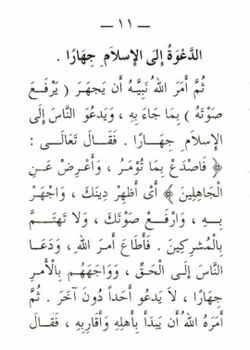 — ١١ —
الدَّعْوَةُ إِلَى الإِسْلَامِ جِهَارًا .
ثُمَّ أَمَرَ اللهُ نَبِيَّهُ أَن يَجْهَرَ ( يَرْفَعَ
صَوْتَهُ ) بِمَا جَاءَ بِهِ ، وَيَدعُوَ النَّاسَ إِلَى
الإِسلَامِ جِهَارًا . فَقَالَ تَعَالَى :
﴿ فَاصْدَعْ بِمَا تُؤْمَرُ ، وَأَعْرِضْ عَنِ
الْجَاهِلِينَ ﴾ أَى أَظْهِرْ دِينَكَ ، وَاجْهَرْ
بِهِ ، وَارْفَعْ صَوْتَكَ ، وَلَا تَهْتَمَّ
بِالْمُشْرِكِينَ . فَأَطَاعَ أَمرَ اللهِ ، وَدَعَا
النَّاسَ إِلَى الْحَقِّ ، وَوَاجَهَهُم بِالأَمرِ
جِهَارًا ، لَا يَدعُو أَحَداً دُونَ آخَرَ . ثُمَّ
أَمَرَهُ اللهُ أَن يَبْدَأَ بِأَهلِهِ وَأَقَارِبِهِ ، فَقَالَ